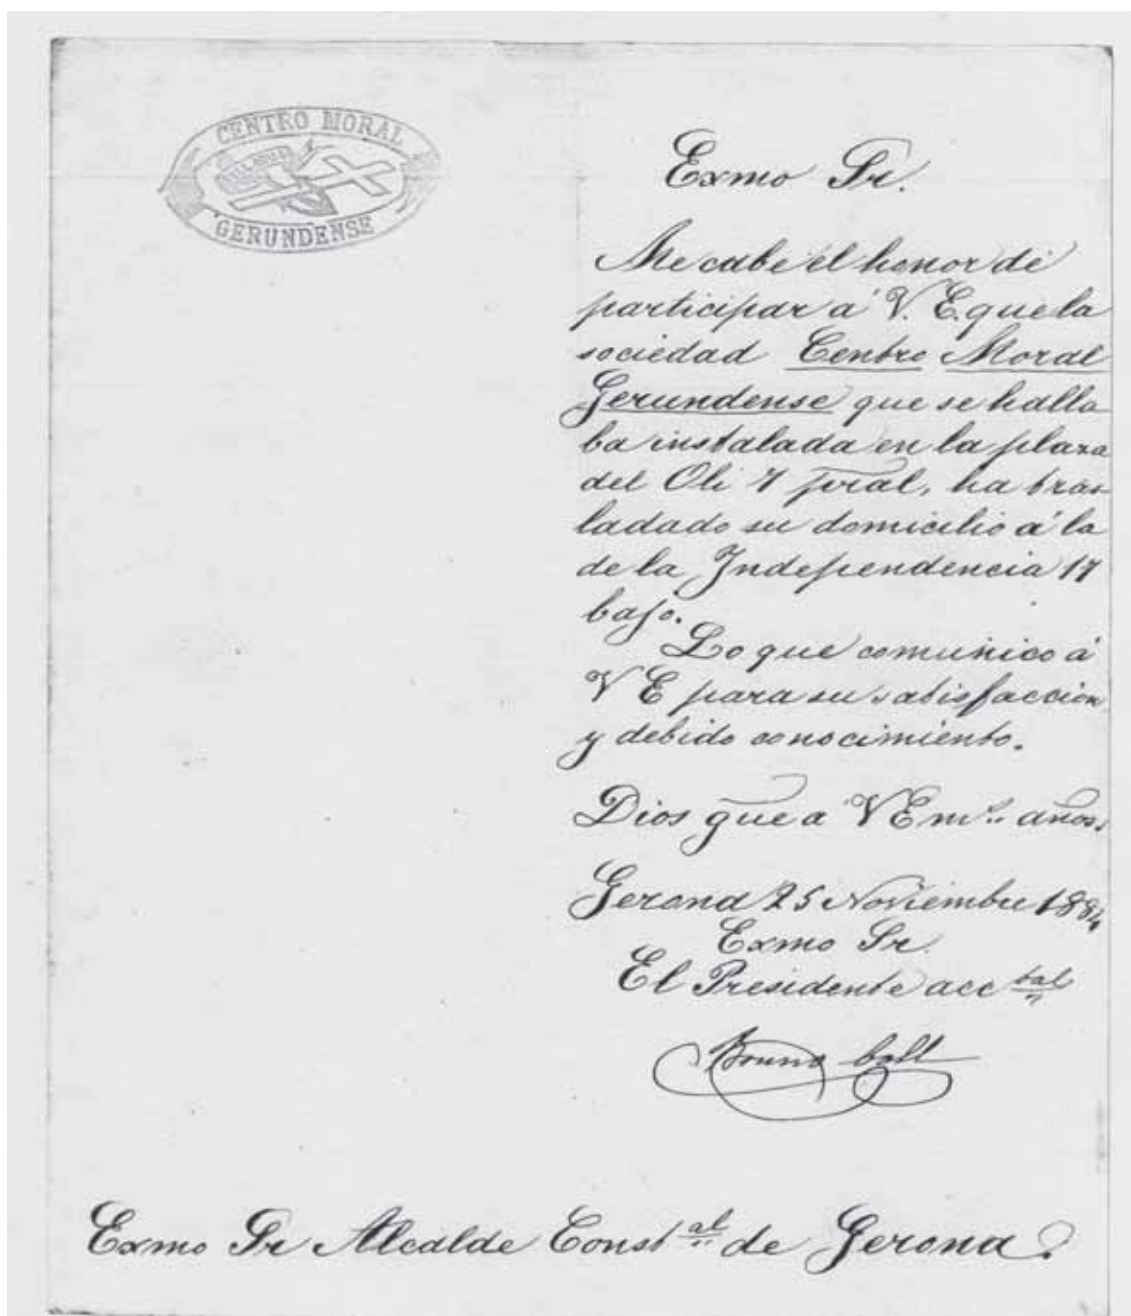 CENTRO MORAL
GERUNDENSE
Exmo Sr.
Me cabe el honor de
participar á V. E. que la
sociedad Centro Moral
Gerundense que se halla
ba instalada en la plaza
del Oli 7 pral, ha tras-
ladado su domicilio á la
de la Independencia 17
bajo.
Lo que comunico á
V E para su satisfaccion
y debido conocimiento.
Dios gue a V E ms. años.
Gerona 25 Noviembre 1884
Exmo Sr.
El Presidente acctal
Bruno Coll
Exmo Sr Alcalde Constal de Gerona.